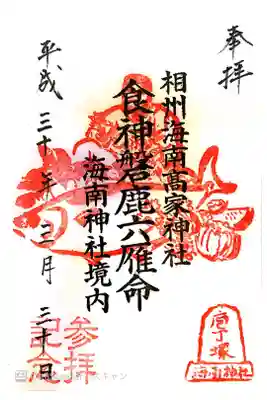 奉拝
相州海南高家神社
食神磐鹿六雁命
海南神社境内
平成三十年三月三十日
参拝
記念
庖丁塚
海南神社